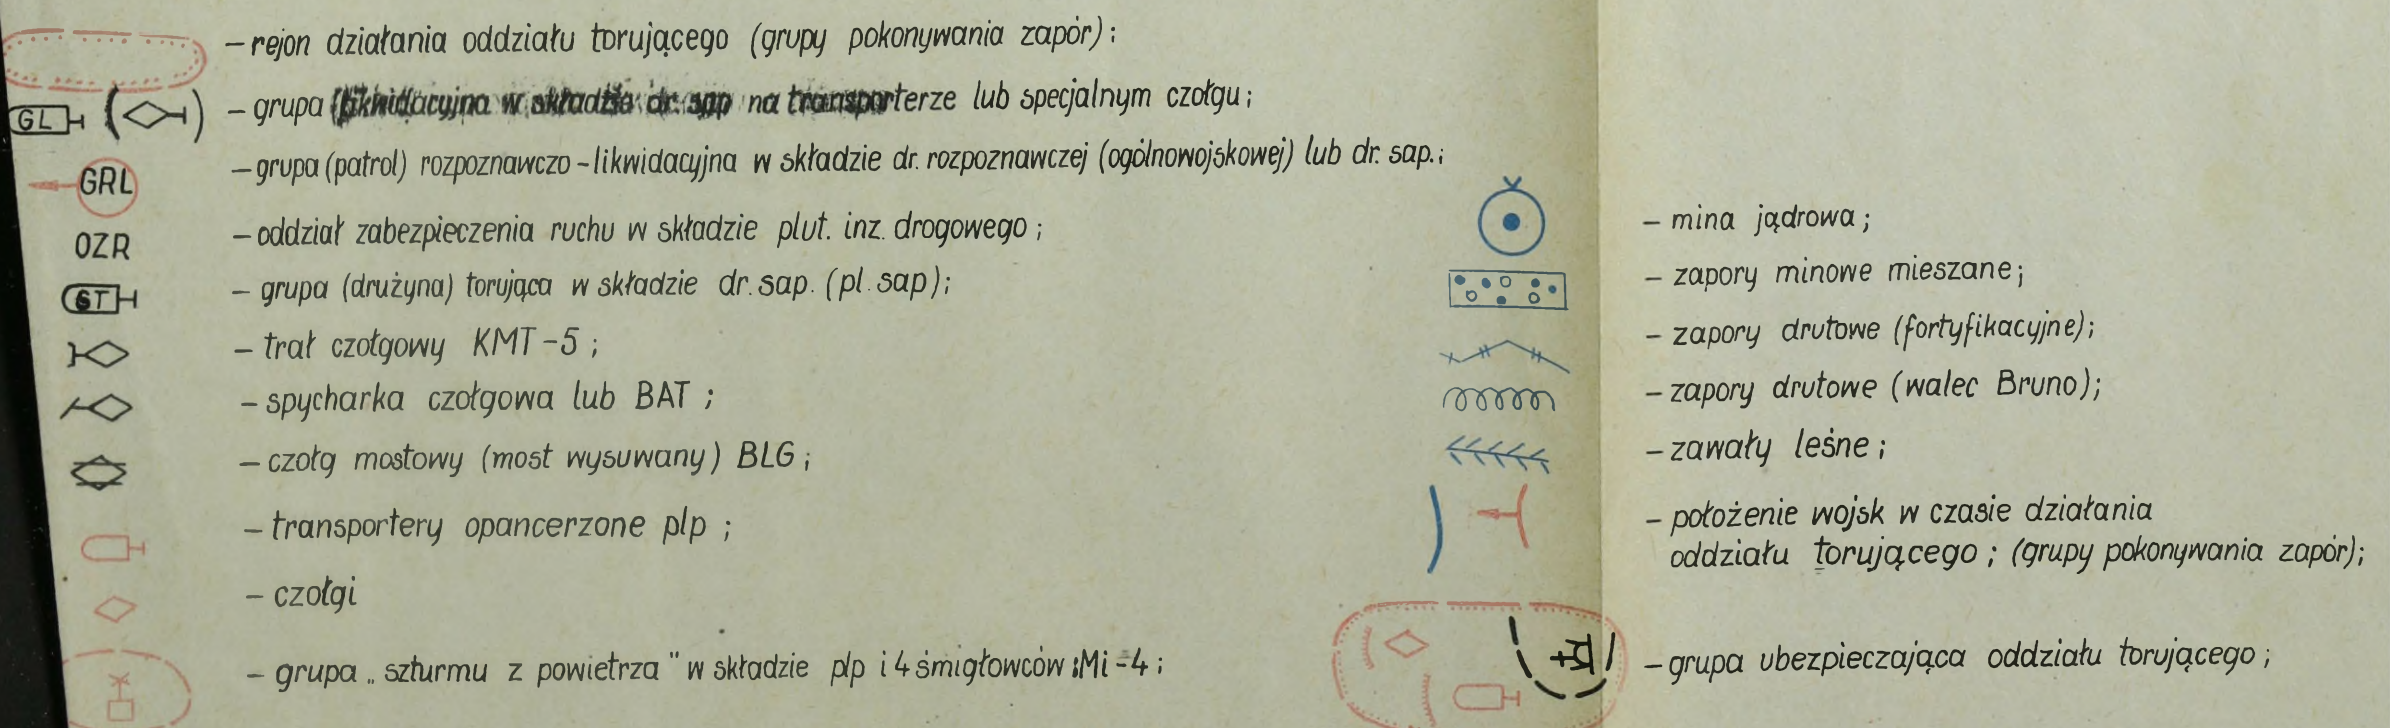 – rejon działania oddziału torującego (grupy pokonywania zapór);
GL – grupa likwidacyjna w składzie dr. sap na transporterze lub specjalnym czołgu;
GRL – grupa (patrol) rozpoznawczo-likwidacyjna w składzie dr. rozpoznawczej (ogólnowojskowej) lub dr. sap.;
OZR – oddział zabezpieczenia ruchu w składzie plut. inz. drogowego;
GT – grupa (drużyna) torująca w składzie dr. sap. (pl. sap);
– trał czołgowy KMT-5;
– spycharka czołgowa lub BAT;
– czołg mostowy (most wysuwany) BLG;
– transportery opancerzone plp;
– czołgi
– grupa „szturmu z powietrza" w składzie plp i 4 śmigłowców Mi-4;
– mina jądrowa;
– zapory minowe mieszane;
– zapory drutowe (fortyfikacyjne);
– zapory drutowe (walec Bruno);
– zawały leśne;
– położenie wojsk w czasie działania
oddziału torującego; (grupy pokonywania zapór);
– grupa ubezpieczająca oddziału torującego;